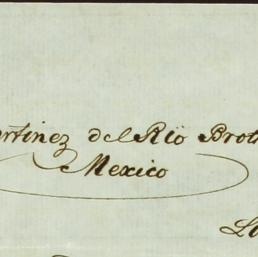 artinez del Rio Brot
Mexico